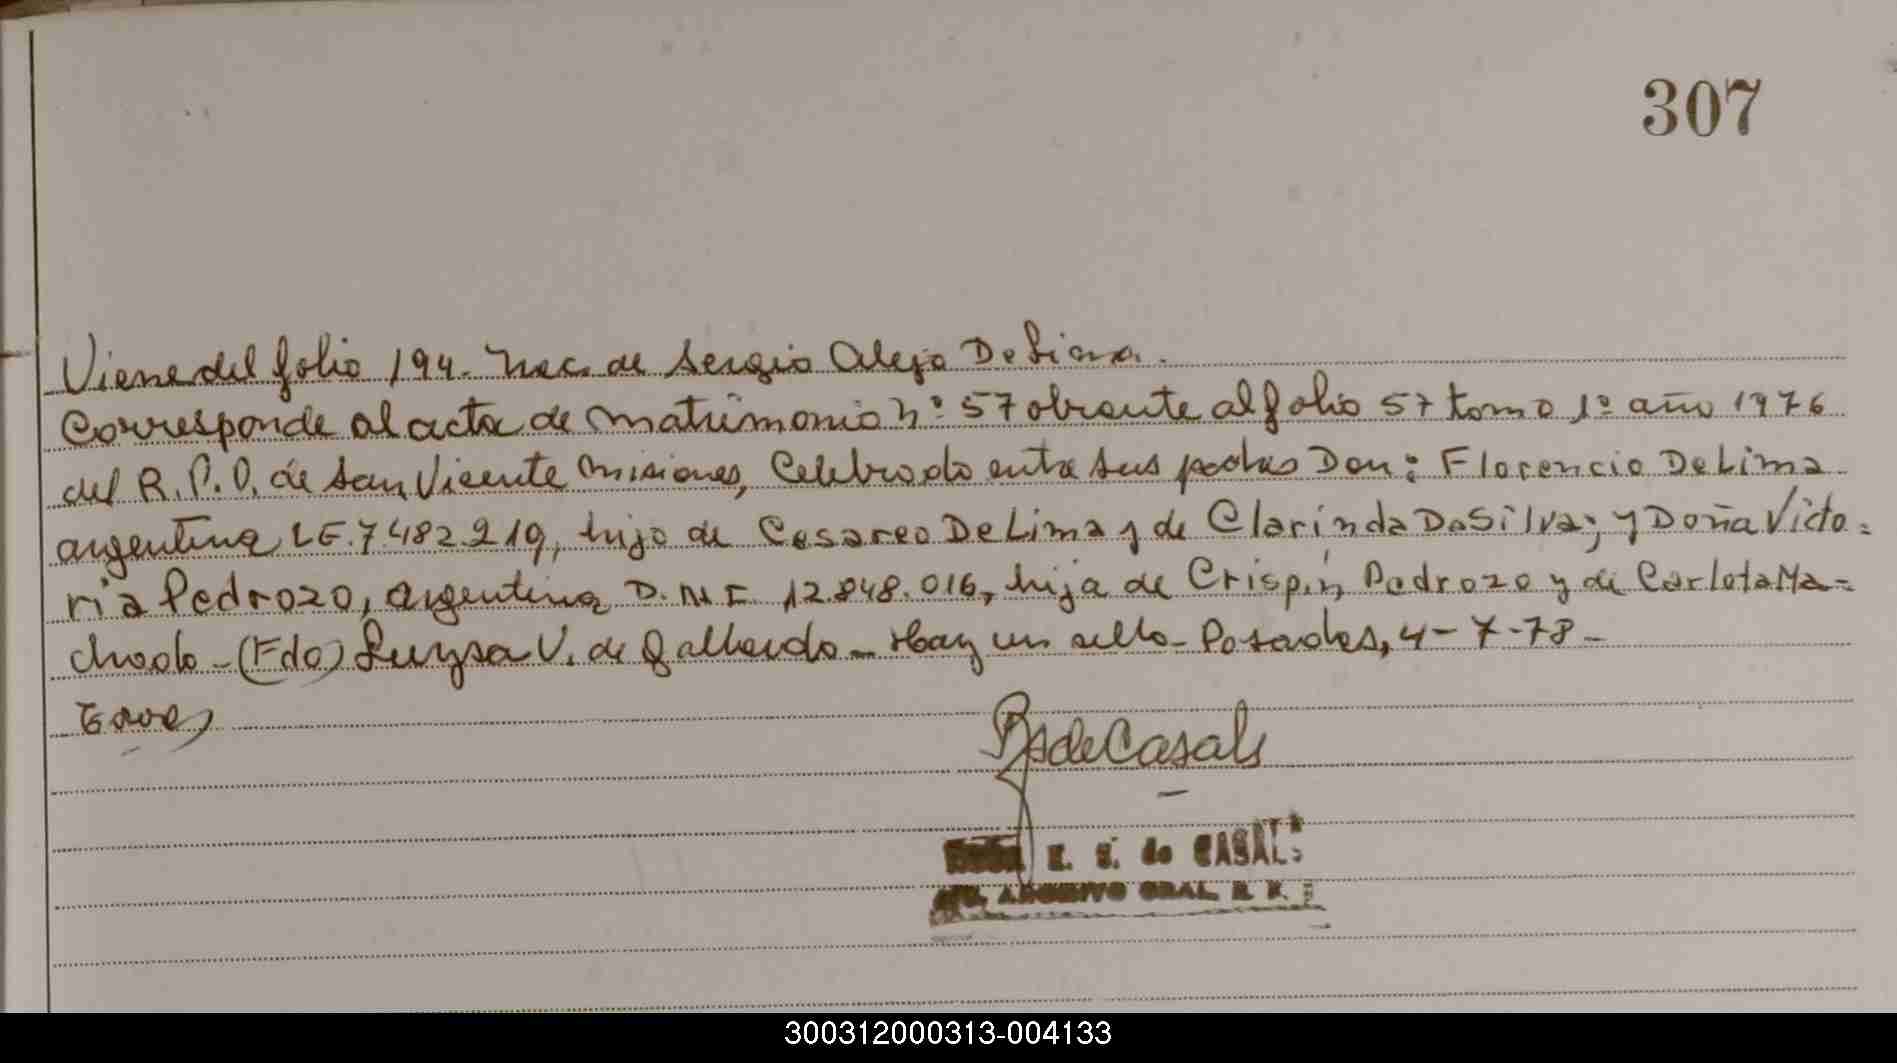 307
Viene del folio 194. Nac. de Sergio Alejo De Lima.
Corresponde al acta de matrimonio nº 57 obrante al folio 57 tomo 1º año 1976
del R.P.O. de San Vicente Misiones, Celebrado entre sus padres Don: Florencio De Lima
argentino LE.7.482.219, hijo de Cesareo De Lima y de Clarinda DaSilva; y Doña Victo=
ria Pedrozo, argentina D.N.I. 12.848.016, hija de Crispin Pedrozo y de Carlota Ma=
chado - (Fdo) Luysa V. de Gallardo - Hay un sello - Posadas, 4-7-78-
de Casals
E. S. de CASALS
ARCHIVO GRAL. R. P.
300312000313-004133